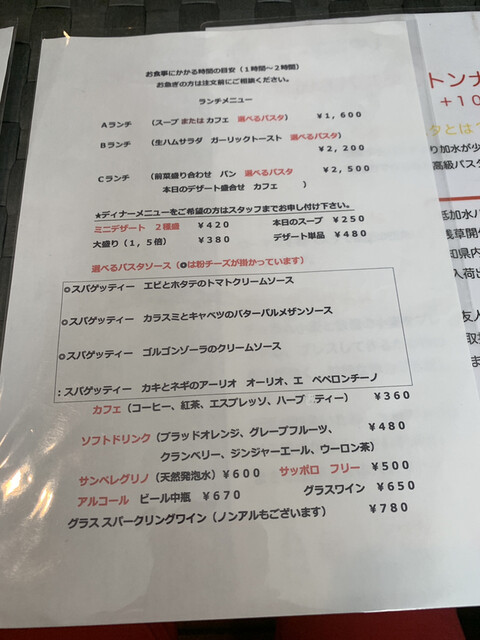 お食事にかかる時間の目安（１時間～２時間）
お急ぎの方は注文前にご相談ください。
ランチメニュー
Ａランチ （スープ または カフェ 選べるパスタ） ￥１，６００
Ｂランチ （生ハムサラダ ガーリックトースト 選べるパスタ）
￥２，２００
Ｃランチ （前菜盛り合わせ パン 選べるパスタ ￥２，５００
本日のデザート盛合せ カフェ ）
★ディナーメニューをご希望の方はスタッフまでお申し付け下さい。
ミニデザート ２種盛 ￥４２０ 本日のスープ ￥２５０
大盛り（１，５倍） ￥３８０ デザート単品 ￥４８０
選べるパスタソース（◎は粉チーズが掛かっています）
◎スパゲッティー エビとホタテのトマトクリームソース
◎スパゲッティー カラスミとキャベツのバターパルメザンソース
◎スパゲッティー ゴルゴンゾーラのクリームソース
：スパゲッティー カキとネギのアーリオ オーリオ、エ ペペロンチーノ
カフェ（コーヒー、紅茶、エスプレッソ、ハーブ ティー） ￥３６０
ソフトドリンク（ブラッドオレンジ、グレープフルーツ、 ￥４８０
クランベリー、ジンジャーエール、ウーロン茶）
サンペレグリノ（天然発泡水）￥６００ サッポロ フリー ￥５００
アルコール ビール中瓶 ￥６７０ グラスワイン ￥６５０
グラス スパークリングワイン（ノンアルもございます） ￥７８０
トンナ
＋１０
タとは？
り加水が少
高級パスタ
加水パ
浅草開化
知県内
入荷出
友人
取
ま